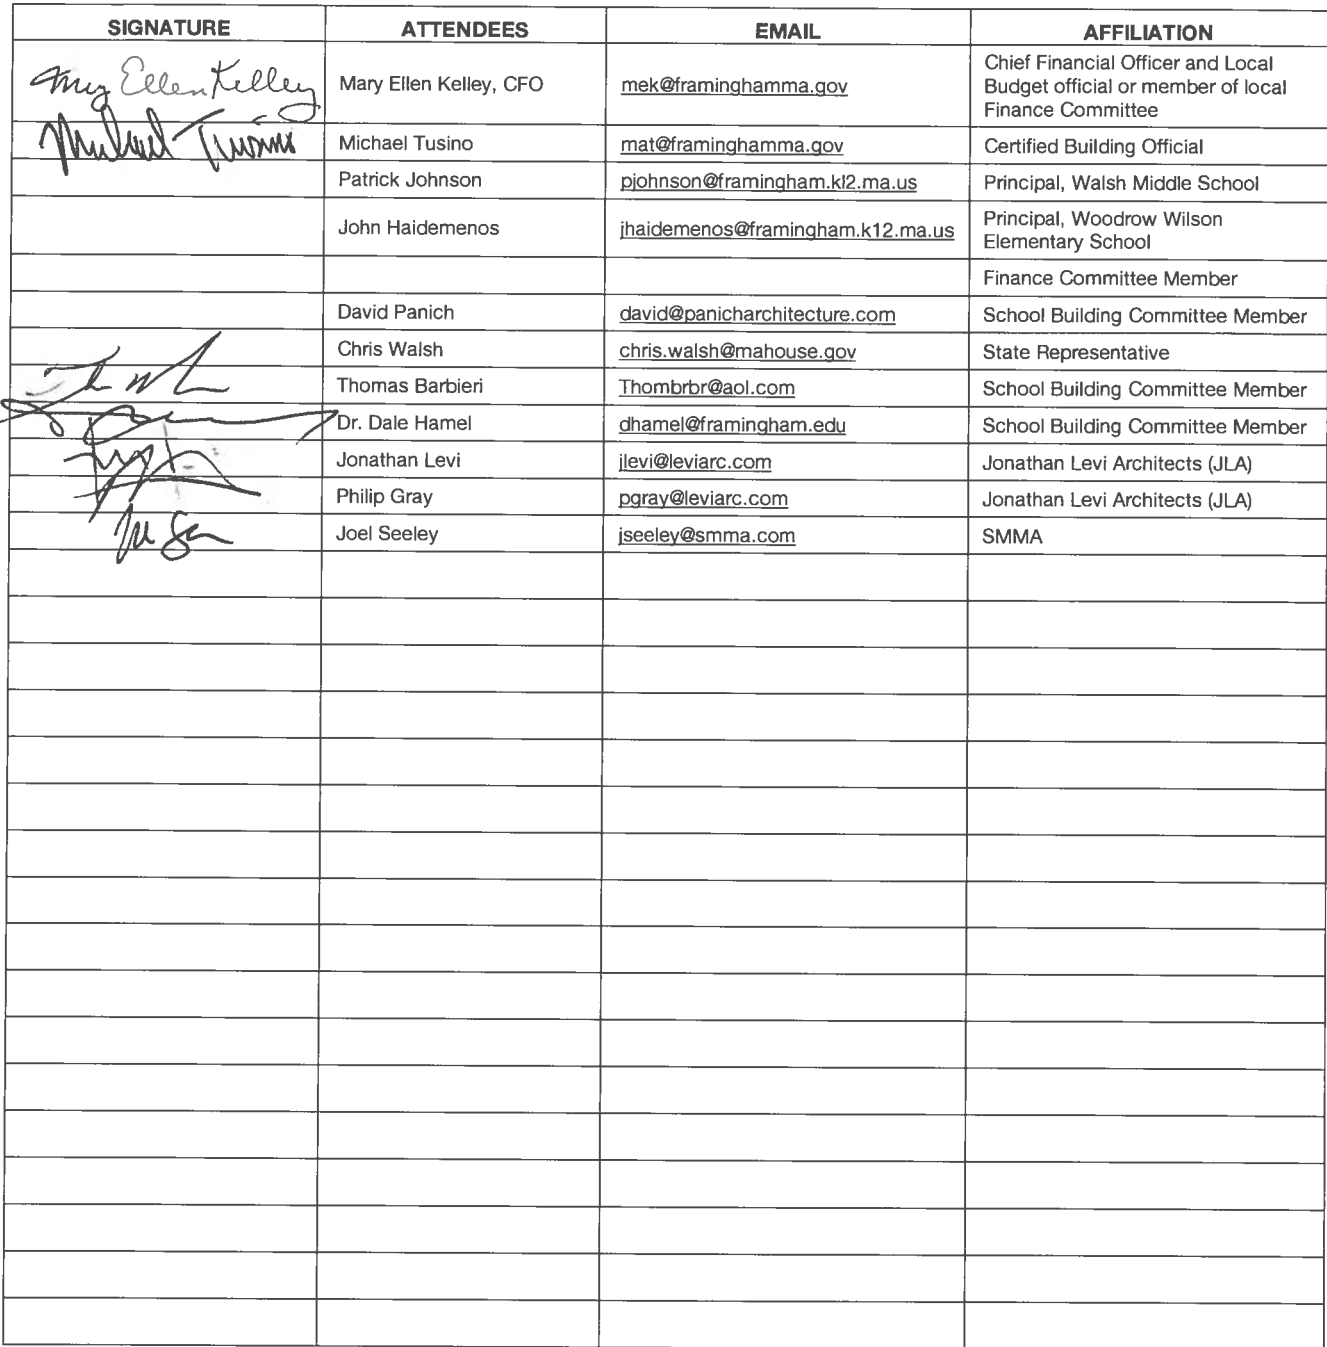 SIGNATURE ATTENDEES EMAIL AFFILIATION
Mary Ellen Kelley Mary Ellen Kelley, CFO mek@framinghamma.gov Chief Financial Officer and Local
Budget official or member of local
Finance Committee
Michael Tusino Michael Tusino mat@framinghamma.gov Certified Building Official
Patrick Johnson pjohnson@framingham.kl2.ma.us Principal, Walsh Middle School
John Haidemenos jhaidemenos@framingham.k12.ma.us Principal, Woodrow Wilson
Elementary School
Finance Committee Member
David Panich david@panicharchitecture.com School Building Committee Member
Chris Walsh chris.walsh@mahouse.gov State Representative
Thomas Barbieri Thombrbr@aol.com School Building Committee Member
Dr. Dale Hamel dhamel@framingham.edu School Building Committee Member
Jonathan Levi jlevi@leviarc.com Jonathan Levi Architects (JLA)
Philip Gray pgray@leviarc.com Jonathan Levi Architects (JLA)
Joel Seeley jseeley@smma.com SMMA